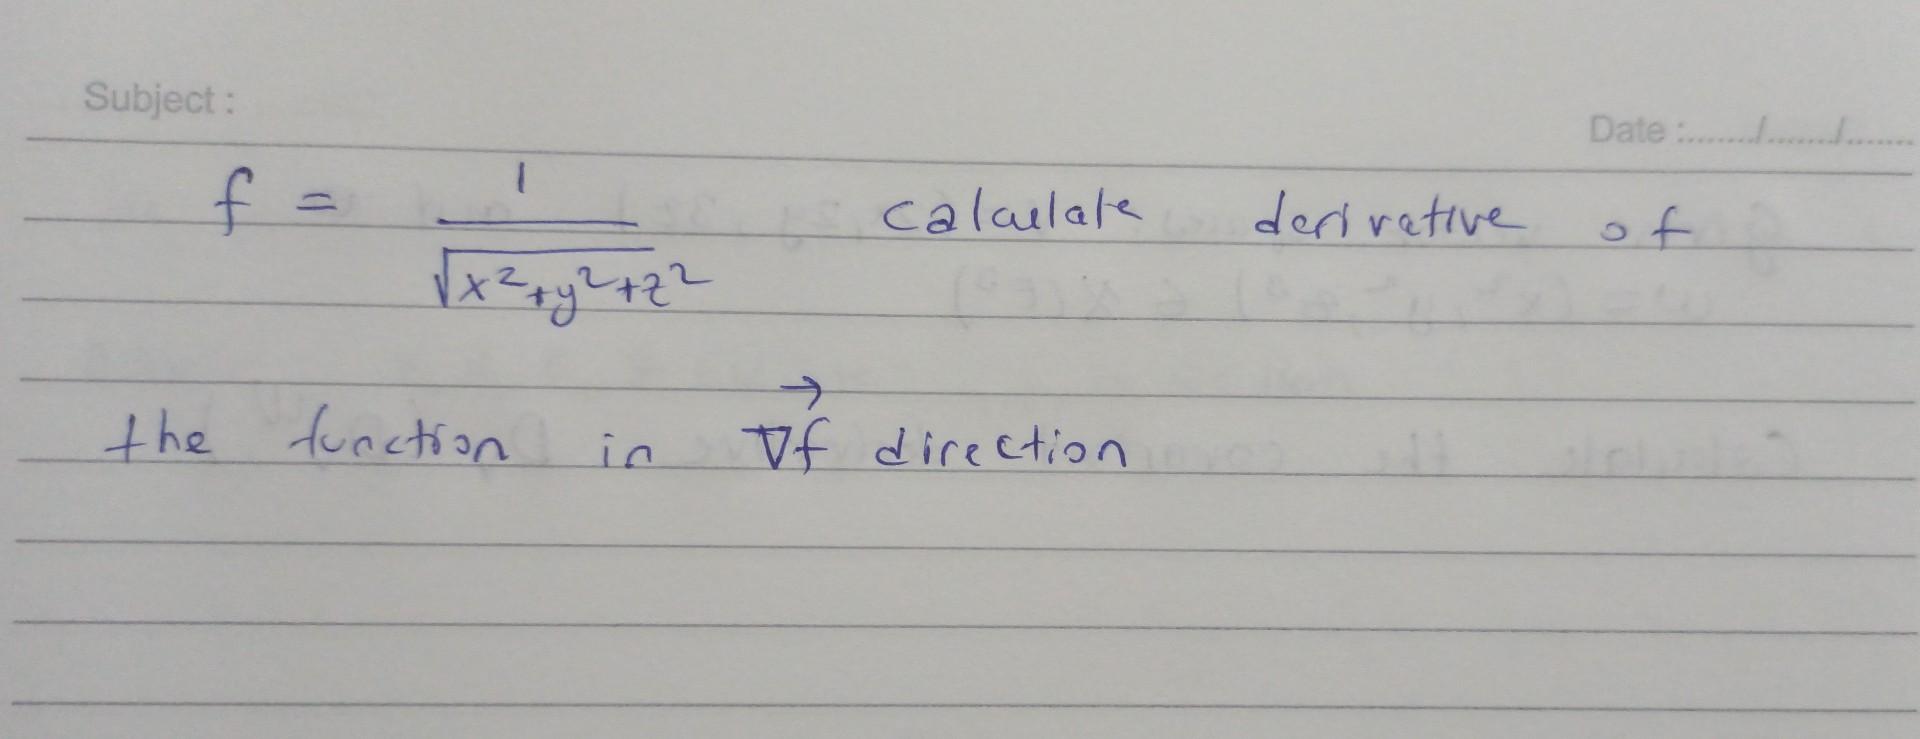 Subject :
Date :......./......./.......
f = 1/√x²+y²+z² calculate derivative of
the function in ∇f⃗ direction